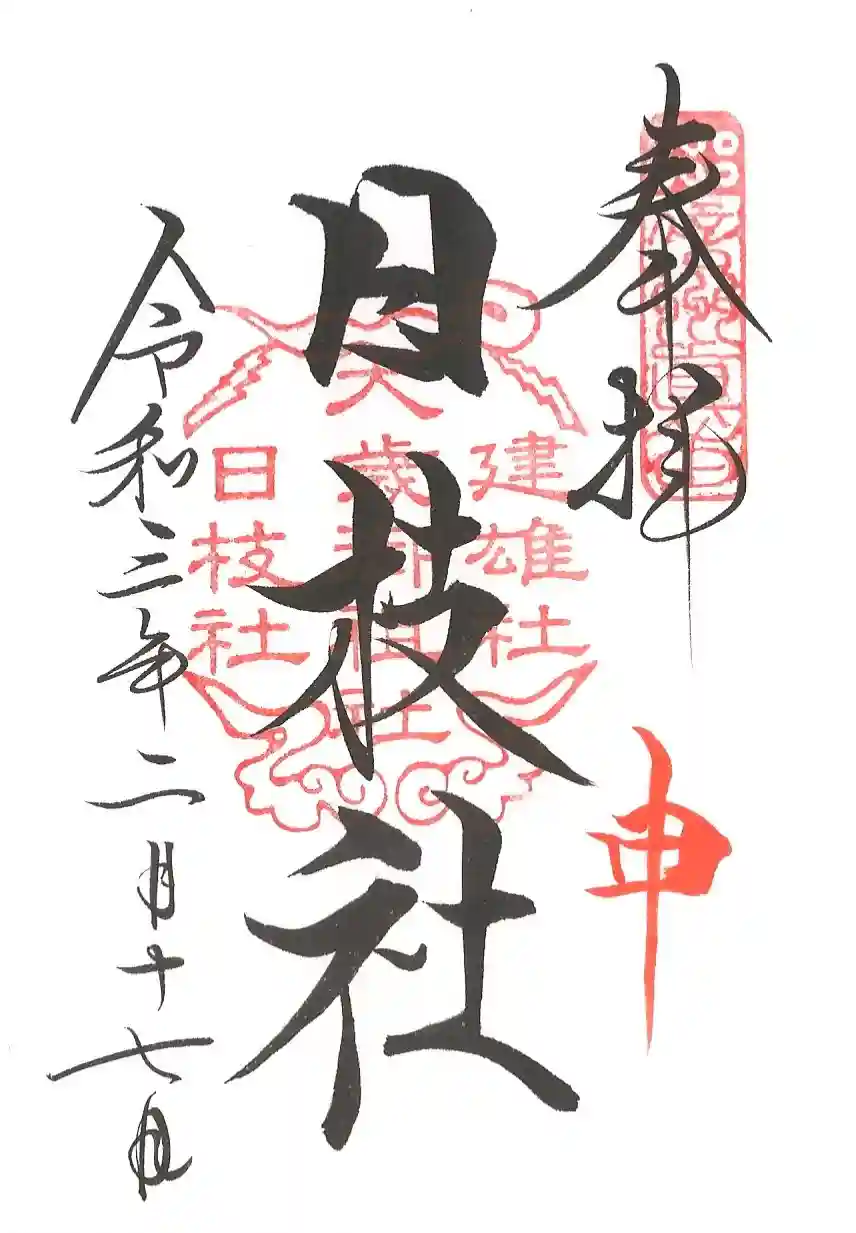 奉拝
申
日枝社
建雄社
大歳御祖社
日枝社
令和三年二月十七日